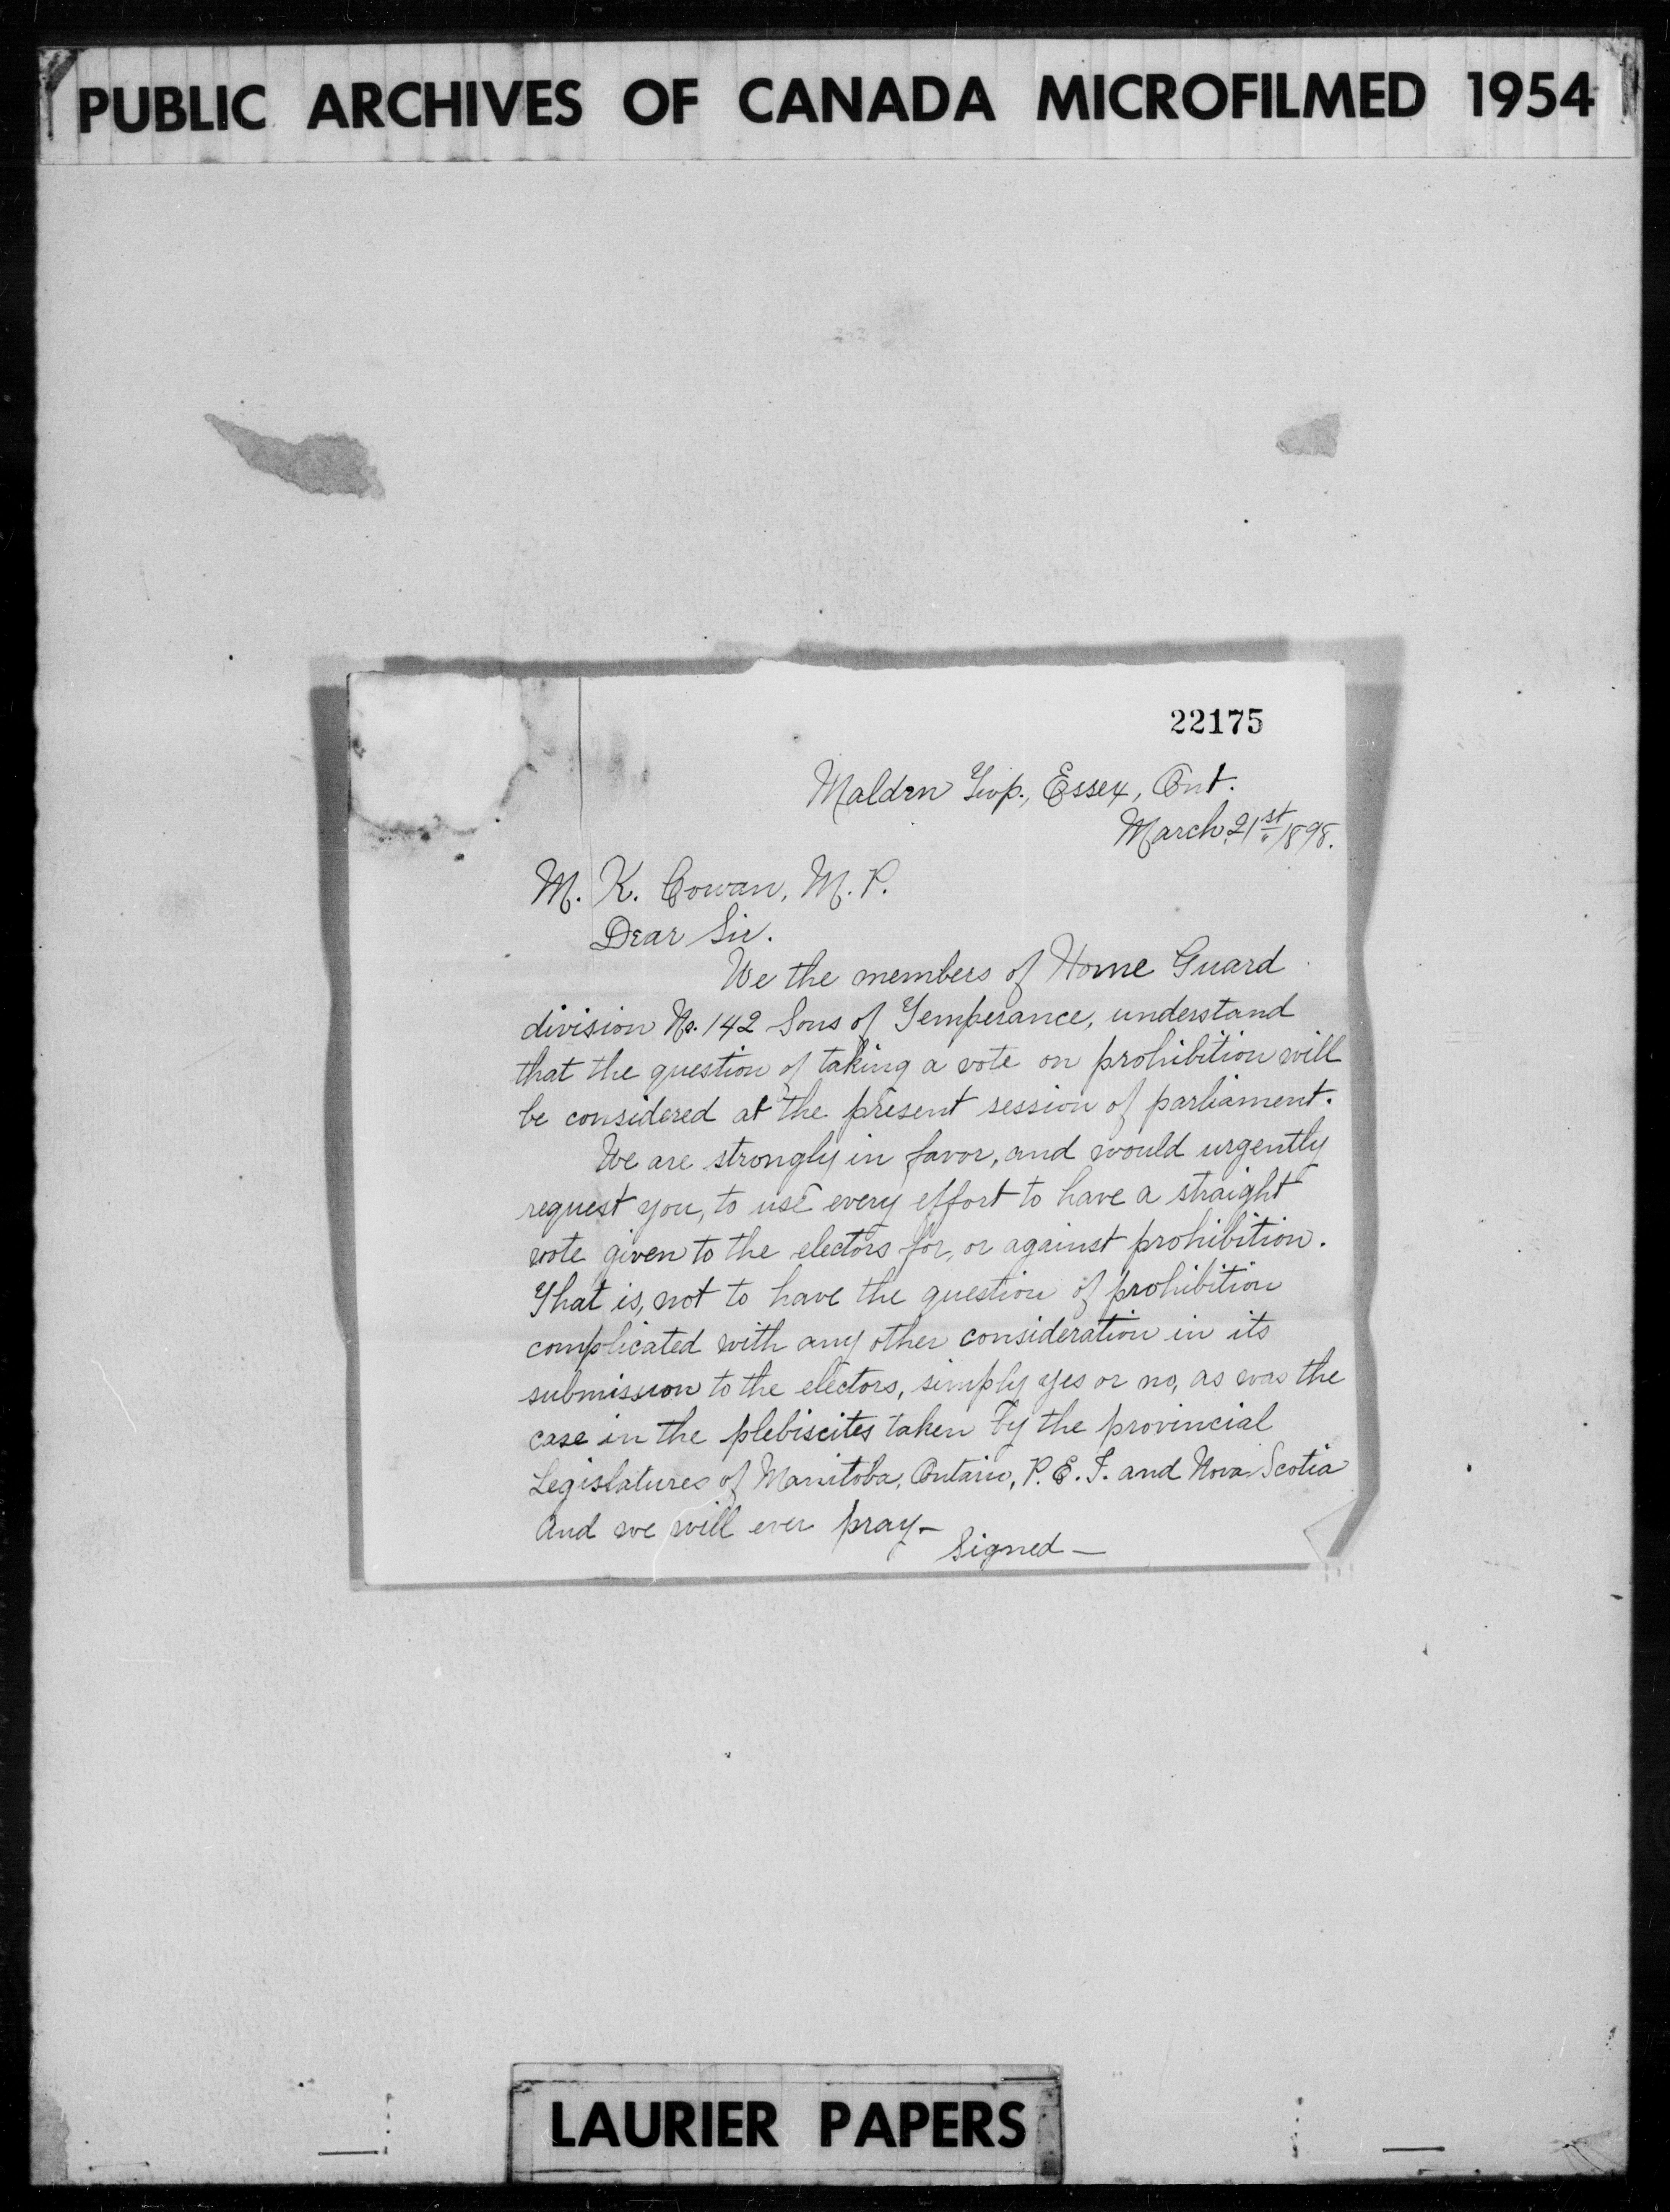 PUBLIC ARCHIVES OF CANADA MICROFILMED 1954
22175
Malden Twp., Essex, Ont.
March, 21st 1898.
M. K. Cowan, M. P.
Dear Sir.
We the members of Home Guard
division No. 142 Sons of Temperance, understand
that the question of taking a vote on prohibition will
be considered at the present session of parliament.
We are strongly in favor, and would urgently
request you, to use every effort to have a straight
vote given to the electors for, or against prohibition.
That is, not to have the question of prohibition
complicated with any other consideration in its
submission to the electors, simply yes or no, as was the
case in the plebiscites taken by the provincial
Legislatures of Manitoba, Ontario, P. E. I. and Nova Scotia
And we will ever pray—
Signed—
LAURIER PAPERS